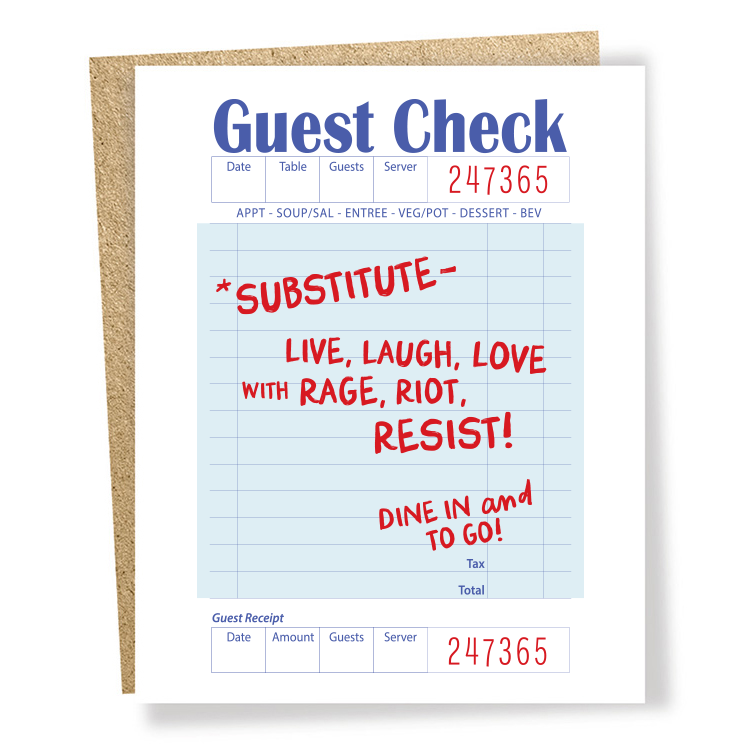 Guest Check
Date Table Guests Server 247365
APPT - SOUP/SAL - ENTREE - VEG/POT - DESSERT - BEV
*SUBSTITUTE-
LIVE, LAUGH, LOVE
WITH RAGE, RIOT,
RESIST!
DINE IN and
TO GO!
Tax
Total
Guest Receipt
Date Amount Guests Server 247365